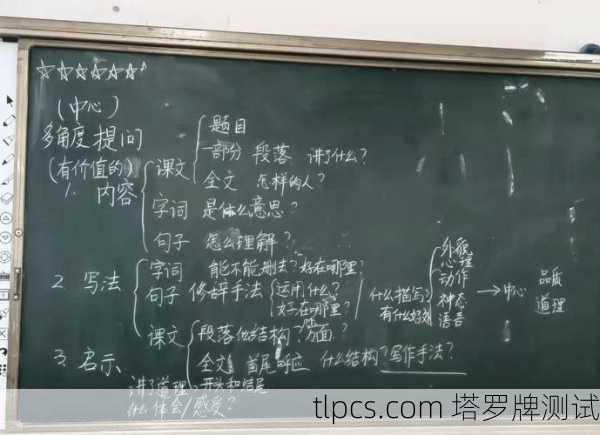 ☆☆☆☆☆☆
(中心)
多角度提问
(有价值的)
1. 内容
课文
题目
一部分 段落 讲了什么?
全文 怎样的人?
字词 是什么意思?
句子 怎么理解?
2. 写法
字词 能不能删去? 好在哪里?
句子 修辞手法 运用什么?
好在哪里?
什么描写?
有什么好处
外貌
心理
动作
神态
语言
→中心 品质
道理
课文
段落 结构 方面?
全文 首尾呼应 什么结构?写作手法?
开头和结尾
3. 启示
讲了道理
什么体会/感受?
tlpcs.com 塔罗牌测试